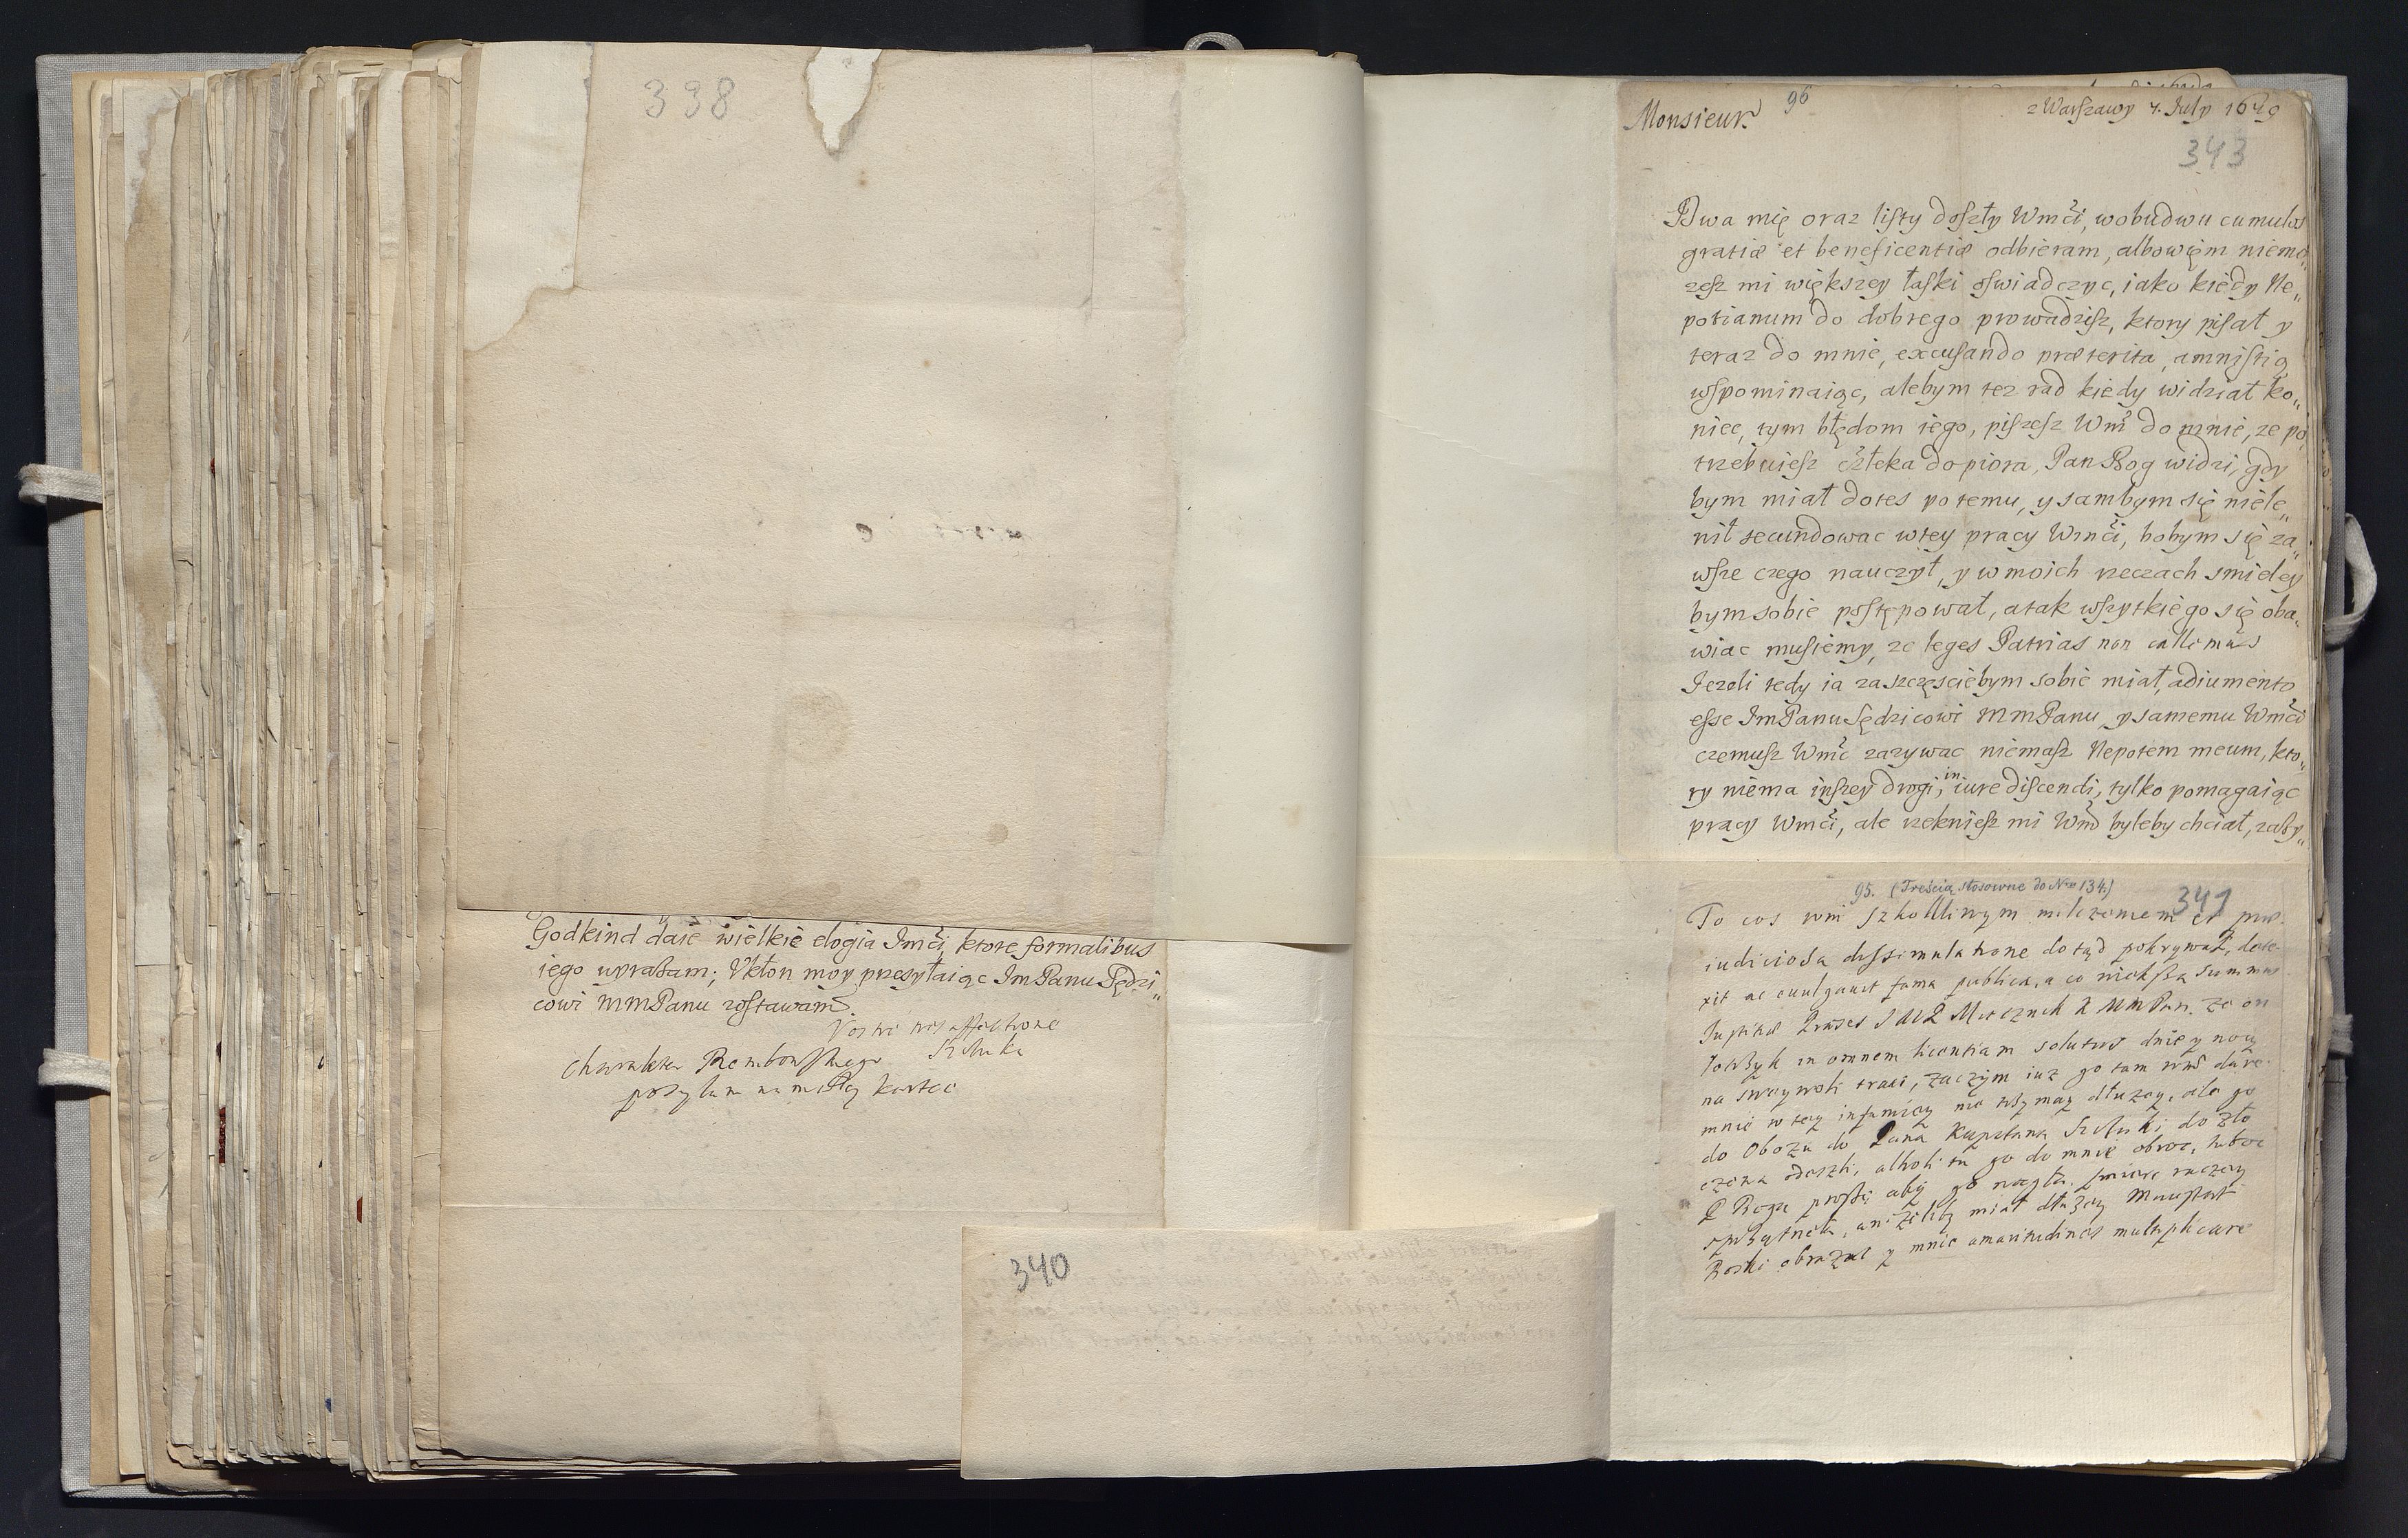 338
Godkind daie wielkie elogia Jmči, ktore formalibus
iego wyrażam; Ukłon moy przesyłaiąc ImPanu Sędzi„
cowi MMPanu zostawam.
Vostre tres affectione
Szczuka
Charakter Rembowskiego
posyłam na małey kartce
340
Monsieur
96
z Warszawy 4. July 1679
343
Dwa mię oraz listy doszły Wmči, wobudwu cumulos
gratiæ et beneficentiæ odbieram, albowięm niemo„
zesz mi większey łaski oswiadczyc, iako kiedy Ne„
potianum do dobrego prowadzisz, ktory pisał y
teraz do mnie, excusando præterita, amnistią
wspominaiąc, alebym tez rad kiedy widział ko„
niec, tym błędom iego, piszesz Wmć do mnie, ze po„
trzebuiesz człeka do piora, Pan Bog widzi, gdy
bym miał dotes po temu, y sambym się niele„
nił secundowac wtey pracy Wmči, bobym się za„
wsze czego nauczył, y w moich rzeczach smieley
bym sobie postępował, a tak wszytkiego się oba„
wiac musiemy, ze leges Patrias non callemus
Jezeli tedy ia za szczęsciebym sobie miał, adiumento
esse ImPanu Sędzicowi MMPanu y samemu Wmči
czemusz Wmć zazywac niemasz Nepotem meum, kto„
ry niema inszey drogi, in iure discendi, tylko pomagaiąc
pracy Wmči, ale rzekniesz mi Wmć byleby chciał, zaży„
95. (Treścią stosowne do Nro 134.)
341
To cos wm szkodliwym milczeniem et præ
iudiciosa dissimulatione dotąd pokrywał, dete„
xit ac evulgavit fama publica, a co większa summus
Justitiæ Præses JMP Miecznik K MMPan. ze on
in omnem licentiam solutus dnie y nocy
na swaywoli trawi, zaczym iuz go tam wm dare
mnie w tey infamiey nie trzymay dłuzey, ale go
do Obozu do Pana Kapitana Szczuki do
odeszli, alboli tu go do mnie obroc,
P Boga proszę aby go nagła smierc raczey
sprzątnęła, anizeliby miał dłużey Maiestat
Boski obrazac y mnie amaritudines multiplicare